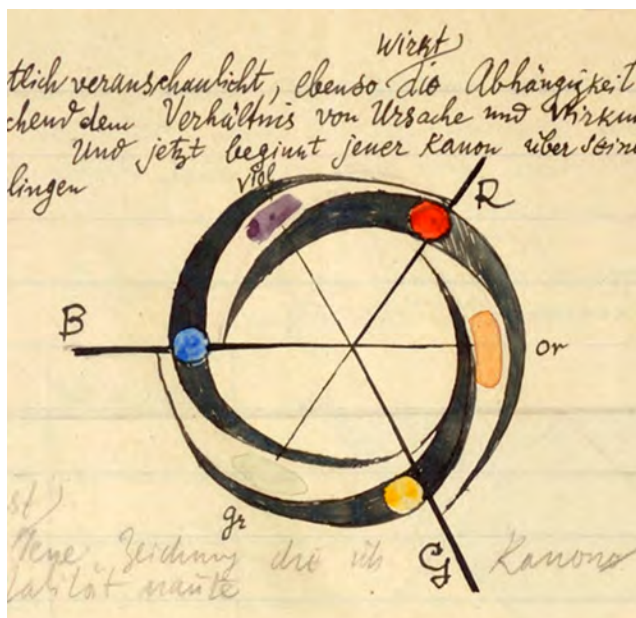 wirkt
tlich veranschaulicht, ebenso die Abhängigkeit
chend dem Verhältnis von Ursache und Wirkun
Und jetzt beginnt jener Kanon über seine
lingen
viol
R
B
or
gr
G
st)
Zeichnung die ich Kanon